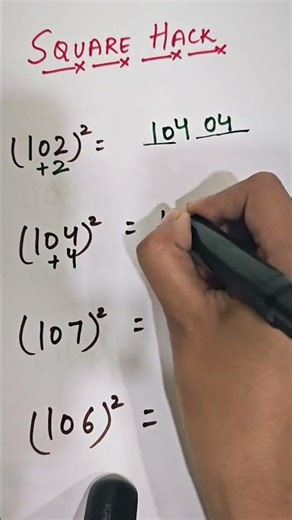 SQUARE HACK
(102)² = 104 04
+2
(104)² =
+4
(107)² =
(106)² =